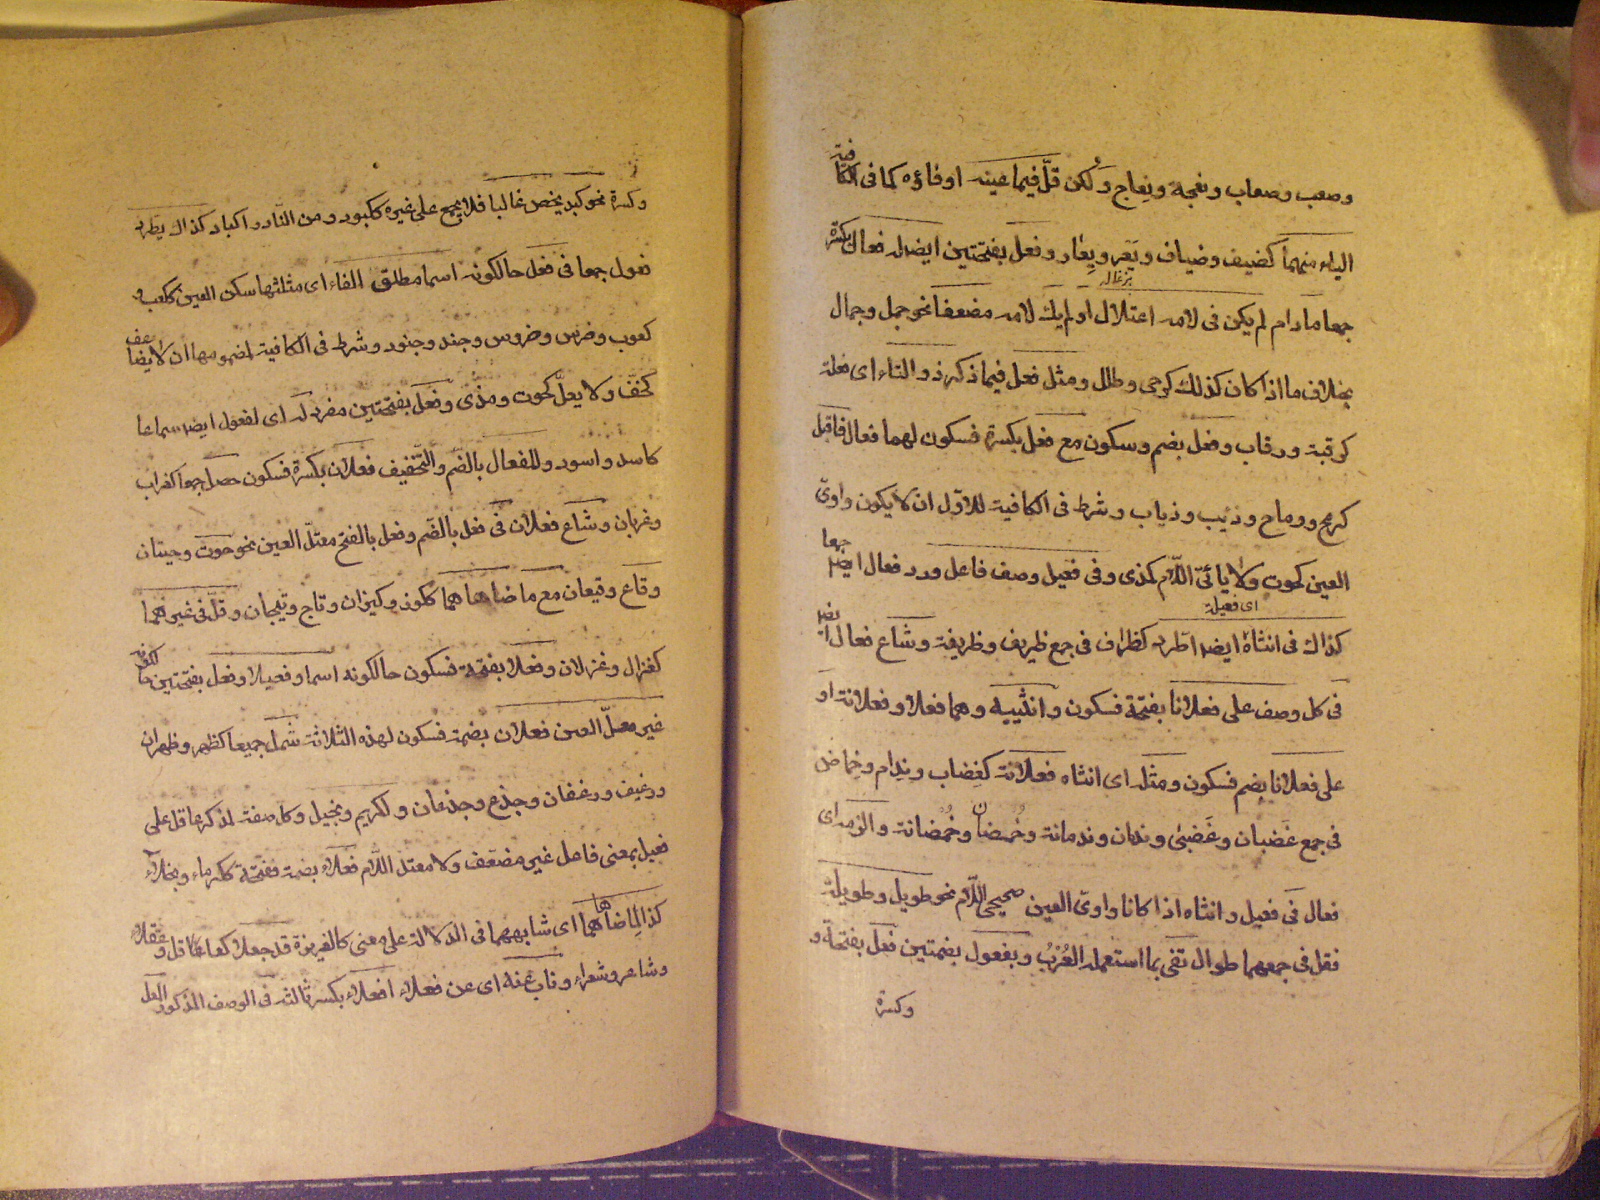 وصعب وصعاب ونعجة ونعاج ولكن قلّ فيما عينه اوفاؤه كما فى الكافية
الياء منهما كضيف وضياف ويَعر ويِعار وفعل بفتحتين ايضا له فعال بكسرة
جمعا مادام لم يكن فى لامه اعتلال او لم يك لامه مضعفا نحو جمل وجمال
بخلاف ما اذا كان كذلك كرحى وطلل ومثل فعل فيما ذكر ذو التاء اى فعلة
كرقبة ورقاب وفعل بضم وسكون مع فعل بكسرة فسكون لهما فعال فاقبل
كرمح ورماح وذئب وذياب وشرط فى الكافية للاوّل ان لا يكون واوىّ
العين كحوت ولا يائىّ اللّام كمدى وفى فعيل وصف فاعل ورد فعال ايضا جمعا
اى فعيلة
كذاك فى انثاه ايضا اطّرد كظراف فى جمع ظريف وظريفة وشاع فعال ايضا
فى كل وصف على فعلانا بفتحة فسكون وانثييه وهما فعلا وفعلانة او
على فعلانا بضم فسكون ومثله اى انثاه فعلانة كغِضاب وندام وخِماص
فى جمع غَضبان وغَضبىٰ وندمان وندمانة وخُمصان وخُمصانة والزمه اى
فعال فى فعيل وانثاه اذا كانا واوىّ العين صحيحى اللّام نحو طويل وطويلة
فقل فى جمعهما طوال تفى بما استعمله العُرْبُ وبفعول بضمتين فعل بفتحة و
وكسرة
وكسرة نحو كبد يخص غالبا فلا يجمع على غيره ككبود ومن النّادر اكباد كذاك يطّرد
فعول جمعا فى فعل حالكونه اسما مطلق الفاء اى مثلثها سكن العين ككعب و
كعوب وضرس وضروس وجند وجنود وشرط فى الكافية لمضمومها ان لا يضاعف
كخفّ ولا يعلّ كحوت ومدى وفعل بفتحتين مفرد له اى لفعول ايضا سماعا
كاسد واسود وللفعال بالضّم والتّخفيف فعلان بكسرة فسكون حصل جمعا كغراب
وغربان وشاع فعلان فى فعل بالضّم وفعل بالفتح معتلّ العين نحو حوت وحيتان
وقاع وقيعان مع ما ضاهاهما ككوز وكيزان وتاج وتيجان وقلّ فى غيرهما
كغزال وغزلان وفعلا بفتحة فسكون حالكونه اسما وفعيلا وفعل بفتحتين حالكونه
غير معلّ العين فعلان بضمة فسكون لهذه الثلاثة شمل جميعا كظهر وظهران
ورغيف ورغفان وجذع وجذعان ولكريم وبخيل وكل صفة لمذكر عاقل على
فعيل بمعنى فاعل غير مضعّف ولا معتلّ اللّام فعلاء بضمة ففتحة ككرماء وبخلاء
كذا لما ضاهاهما اى شابههما فى الدلالة على معنى كالغريزة قد جعلا كعاقل وعقلاء
وشاعر وشعراء وناب عنه اى عن فعلاء افعلاء بكسرة ثالثه فى الوصف المذكور المعل